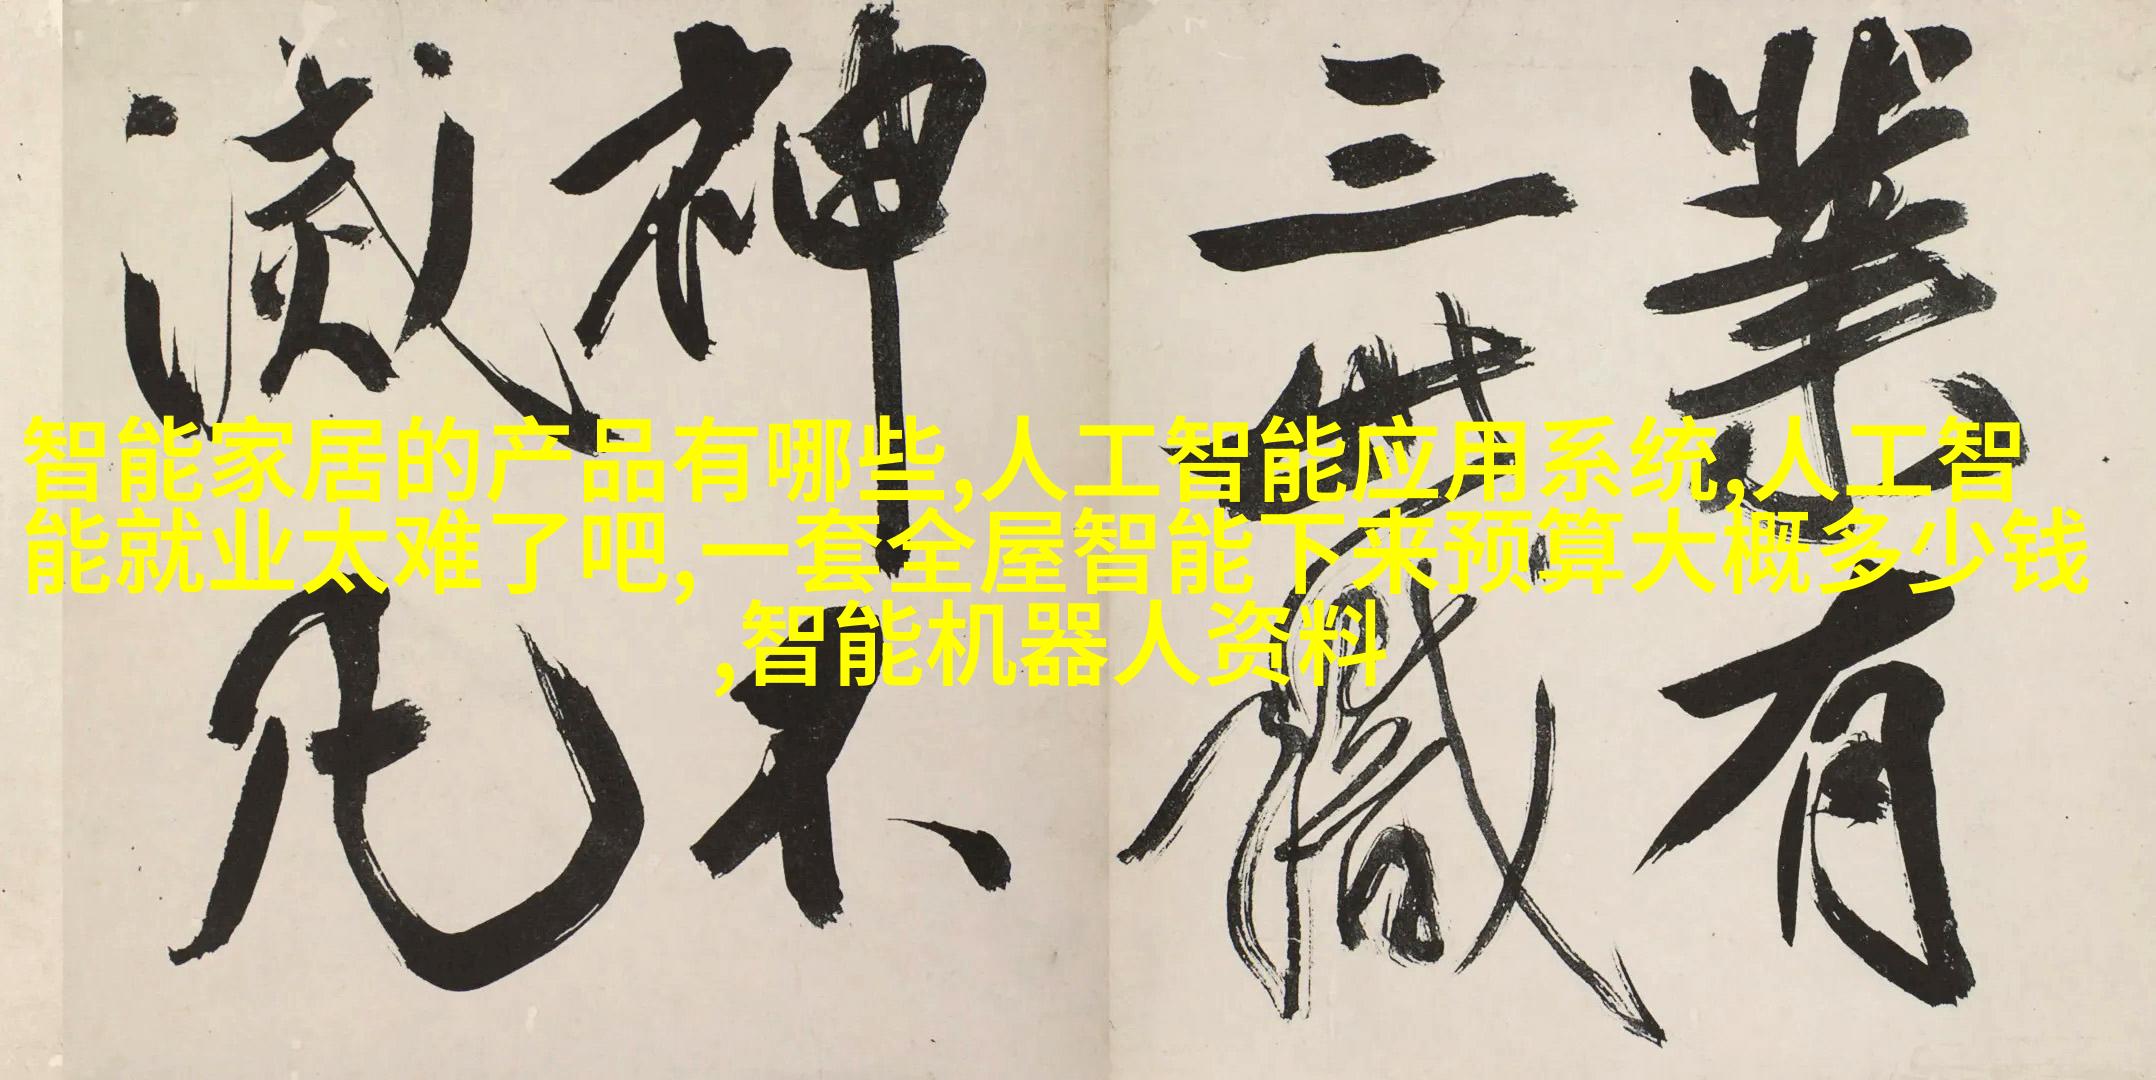 業有
三世職
神不
滅凡
智能家居的产品有哪些,人工智能应用系统,人工智
能就业太难了吧,一套全屋智能下来预算大概多少钱
,智能机器人资料